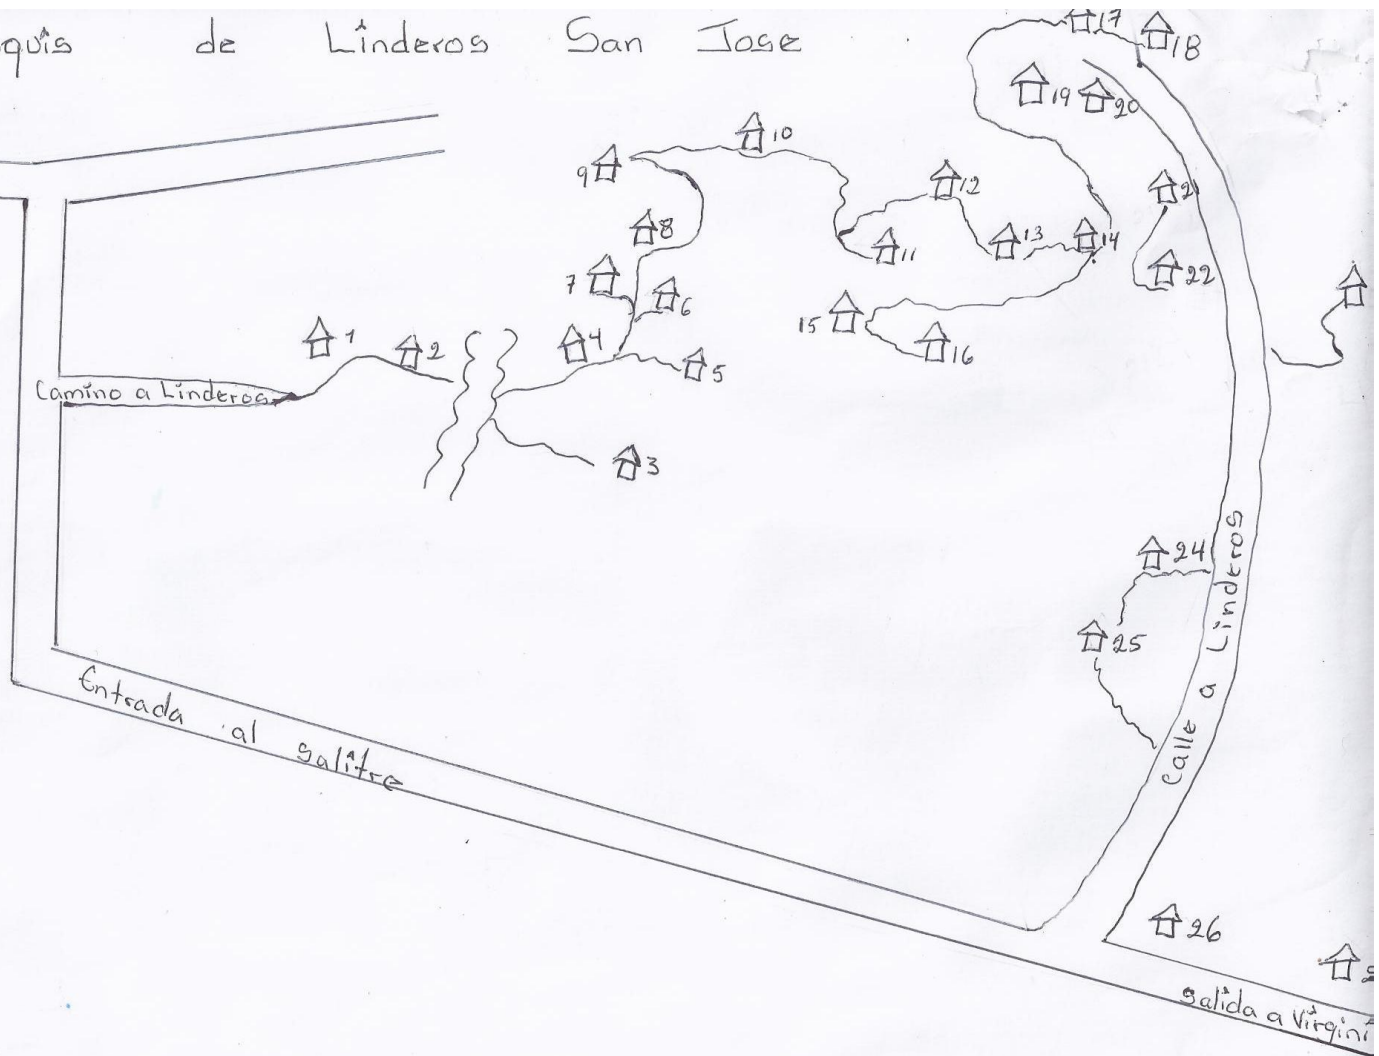 quis de Linderos San Jose
17
18
19
20
10
9
12
8
13
14
11
7
22
6
15
1
4
2
16
5
Camino a Linderos
3
24
25
Calle a Linderos
Entrada al Salitre
26
Salida a Virgini